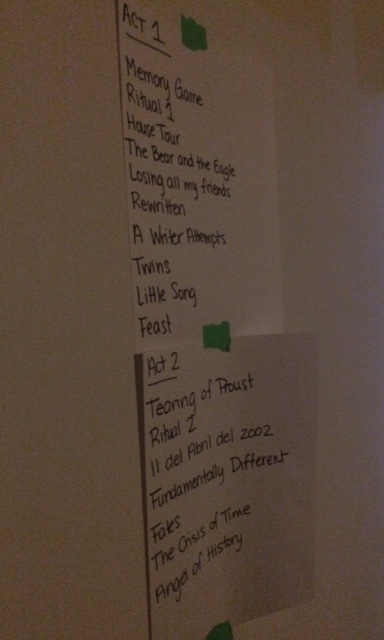 ACT 1
Memory Game
Ritual 1
House Tour
The Bear and the Eagle
Losing all my friends
Rewritten
A Writer Attempts
Twins
Little Song
Feast
Act 2
Tearing of Proust
Ritual 2
11 del Abril del 2002
Fundamentally Different
Fates
The Crisis of Time
Angel of History